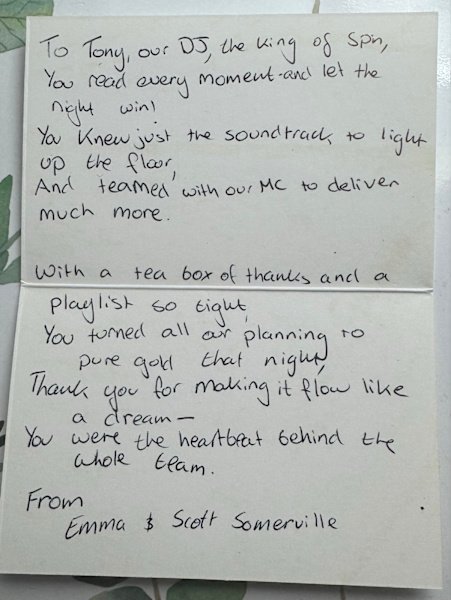 To Tony, our DJ, the king of spin,
You read every moment and let the
night win!
You knew just the soundtrack to light
up the floor,
And teamed with our MC to deliver
much more.
With a tea box of thanks and a
playlist so tight,
You turned all our planning to
pure gold that night,
Thank you for making it flow like
a dream —
You were the heartbeat behind the
whole team.
From
Emma & Scott Somerville